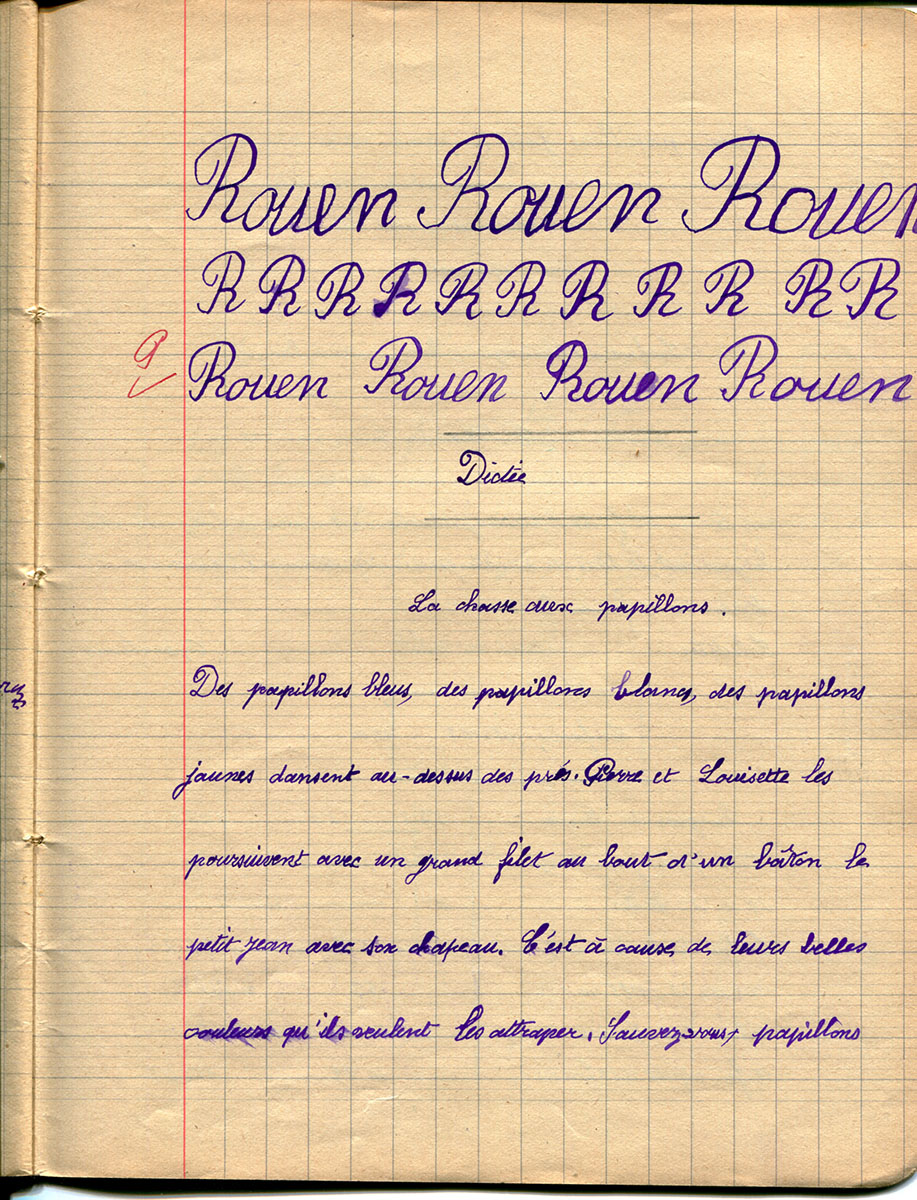 Rouen Rouen Rouen
R R R R R R R R R R R
9
Rouen Rouen Rouen Rouen
Dictée
La chasse aux papillons.
Des papillons bleus, des papillons blancs, des papillons
jaunes dansent au-dessus des prés. Pierre et Louisette les
poursuivent avec un grand filet au bout d'un bâton le
petit jean avec son chapeau. C'est à cause de leurs belles
couleurs qu'ils veulent les attraper. Sauvez-vous, papillons